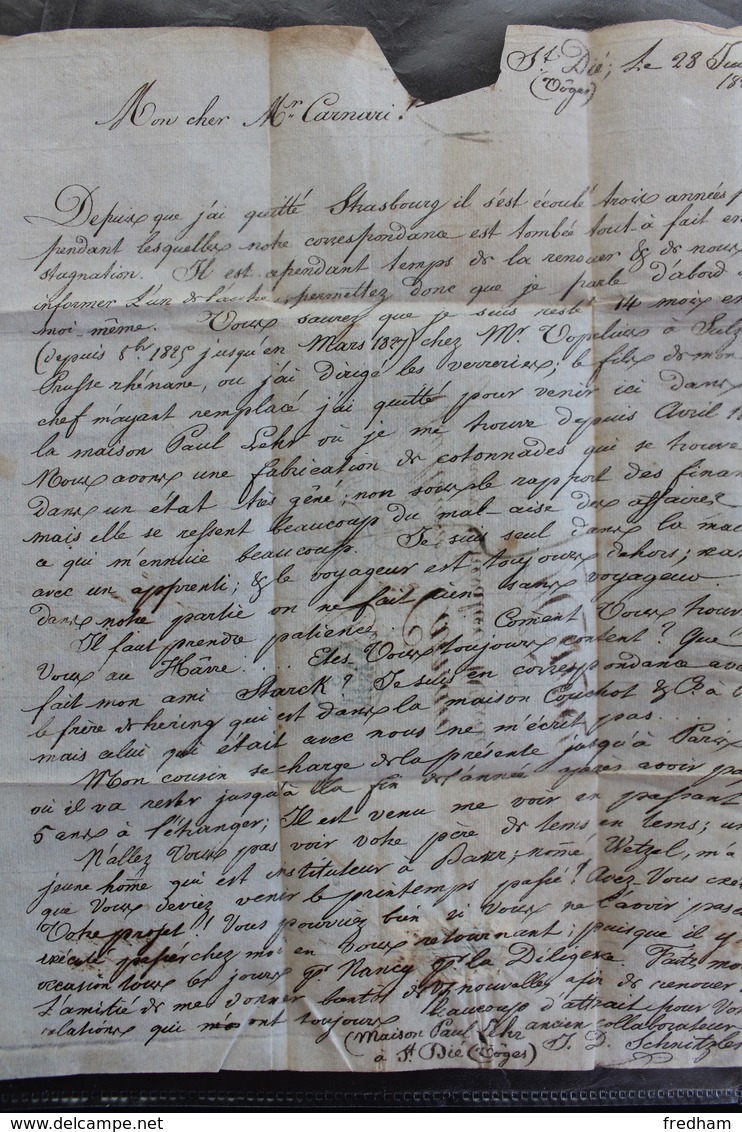 St Dié; Le 28
(Vôges)
18
Mon cher Mr Carnari!
Depuis que j'ai quitté Strasbourg il s'est écoulé trois années
pendant lesquelles notre correspondance est tombée tout-à fait en
stagnation. Il est cependant temps de la renouer & de nous
informer l'un de l'autre; permettez donc que je parle d'abord
moi-même. Vous saurez que je suis resté 14 mois en
(depuis 8br 1825 jusqu'en Mars 1827) chez Mr Vopelius à Sulz
Prusse rhénane, ou j'ai dirigé les verreries; le fils de mon
chef m'ayant remplacé j'ai quitté pour venir ici dans
la maison Paul Lehr où je me trouve depuis Avril
Nous avons une fabrication de cotonnades qui se trouve
dans un état très gêné; non sous le rapport des finan
mais elle se ressent beaucoup du mal-aise des affaires
ce qui m'ennuie beaucoup. Je suis seul dans la mai
avec un apprenti; & le voyageur est toujours dehors; car
dans notre partie on ne fait rien sans voyageur.
Il faut prendre patience. Coment Vous trouv
Vous au Hâvre... Etes Vous toujours content? Que
fait mon ami Starck? Je suis en correspondance avec
le frère de hering qui est dans la maison Couchot & Ce à
mais celui qui était avec nous ne m'écrit pas...
Mon cousin se charge de la présente jusqu'à Paris
où il va rester jusqu'à la fin de l'année après avoir pa
5 ans à l'étranger; Il est venu me voir en passant
N'allez Vous pas voir votre père de tems en tems; un
jeune home qui est instituteur à Barr, nomé Wetzel, m'a
que Vous deviez venir le printemps passé! Avez-Vous
Votre projet!! Vous pourriez bien si Vous ne l'avoir pas
exécuté passer chez moi en Vous retournant; puisque il y
occasion tous les jours pr Nancy pr la Diligence. Faites moi
l'amitié de me donner bientôt de vos nouvelles afin de renouer
relations qui m'ont toujours beaucoup d'attrait pour Vot
ancien collaborateur
(Maison Paul Lehr J. D. Schnitzler
à St Dié (Vôges)
fredham
www.delcampe.net